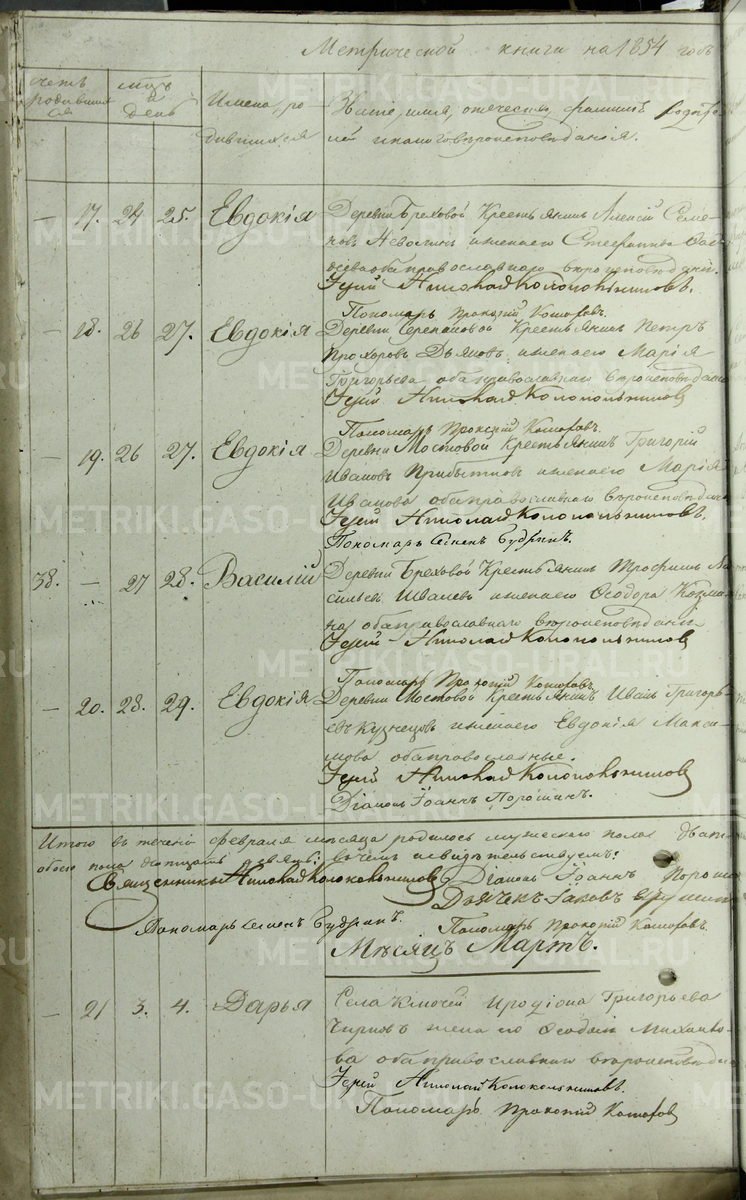 Метрической книги на 1854 годъ
счетъ родившихся
мцъ и день
Имена родившихся
Званіе, имя, отечество, фамилія родителей и какого вѣроисповѣданія.
— 17. 24 25. Евдокія
Деревни Бреховой Крестьянинъ Алексій Семе-
новъ Неволинъ и жена его Стефанида
обa православнаго вѣроисповѣданія.
Іерей Николай Колокольниковъ.
Пономарь Прокопій Кошоровъ.
— 18. 26 27. Евдокія
Деревни Черепановой Крестьянинъ Петръ
Прохоровъ Дьяковъ, и жена его Марія
Григорьева оба православнаго вѣроисповѣданія
Іерей Николай Колокольниковъ
Пономарь Прокопій Кошоровъ.
— 19. 26 27. Евдокія
Деревни Мостовой Крестьянинъ Григорій
Ивановъ Прибытковъ и жена его Марія
Иванова оба православнаго вѣроисповѣданія
Іерей Николай Колокольниковъ.
Пономарь Семенъ Будринъ.
38. — 27 28. Василій
Деревни Бреховой Крестьянинъ Трофимъ Ва-
сильевъ Ивалевъ и жена его Ѳеодора Козми-
на оба православнаго вѣроисповѣданія
Іерей Николай Колокольниковъ
Пономарь Прокопій Кошоровъ.
— 20. 28. 29. Евдокія
Деревни Мостовой Крестьянинъ Иванъ Григорь-
евъ Кузнецовъ и жена его Евдокія Макси-
мова оба православные.
Іерей Николай Колокольниковъ
Діаконъ Іоаннъ Порошинъ.
Итого въ теченіи февраля мѣсяца родилось мужескаго пола
обоего пола двадцать девять: въ чемъ и свидѣтельствуемъ:
Священникъ Николай Колокольниковъ Діаконъ Іоаннъ Порошинъ
Дьячекъ Іаковъ
Пономарь Семенъ Будринъ. Пономарь Прокопій Кошоровъ.
Мѣсяцъ Мартъ.
— 21 3. 4. Дарья
Села Ключей Иродіона Григорьева
жена его Ѳеодосія Михайло-
ва оба православнаго вѣроисповѣданія
Іерей Николай Колокольниковъ.
Пономарь Прокопій Кошоровъ
METRIKI.GASO-URAL.RU